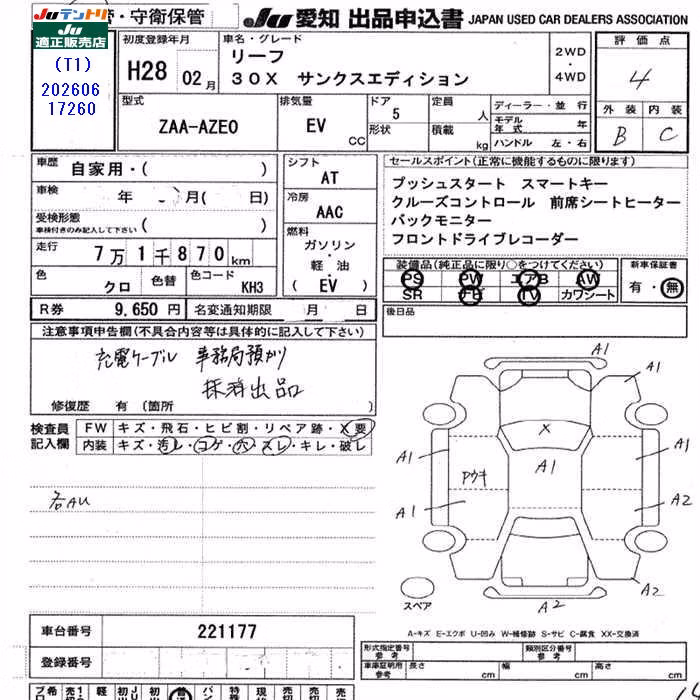 Juテントリ
適正販売店
・守衛保管
Ju 愛知 出品申込書 JAPAN USED CAR DEALERS ASSOCIATION
(T1)
202606
17260
初度登録年月
H28 02月
車名・グレード
リーフ
30X サンクスエディション
2WD
・
4WD
評価点
4
外装 内装
B C
型式
ZAA-AZE0
排気量
EV
cc
ドア
5
形状
定員
人
積載
kg
ディーラー・並行
モデル
年式 年
ハンドル 左・右
車歴
自家用・( )
車検
年 月( 日)
受検形態
車検付きのみ記入して下さい ( )
走行
7万1千870km
色
クロ
色替
色コード
KH3
シフト
AT
冷房
AAC
燃料
ガソリン
・
軽油
・
( EV )
セールスポイント(正常に機能するものに限ります)
プッシュスタート スマートキー
クルーズコントロール 前席シートヒーター
バックモニター
フロントドライブレコーダー
装備品(純正品に限り○をつけてください)
PS PW エアB AW
SR ナビ TV カワシート
新車保証書
有・無
R券 9,650円 名変通知期限 月 日
後日品
注意事項申告欄(不具合内容等は具体的に記入して下さい)
充電ケーブル 事務局預かり
抹消出品
修復歴 有(箇所 )
検査員
記入欄
FW キズ・飛石・ヒビ割・リペア跡・X要
内装 キズ・汚レ・コゲ・穴・スレ・キレ・破レ
各AU
A1
A1
X
A1
A1
A1
Pウキ
A1
A2
A2
A2
スペア
A-キズ E-エクボ U-凹み W-補修跡 S-サビ C-腐食 XX-交換済
車台番号 221177
登録番号
形式指定番号
参考
類別区分番号
参考
車庫証明用
参考
長さ cm 幅 cm 高さ cm